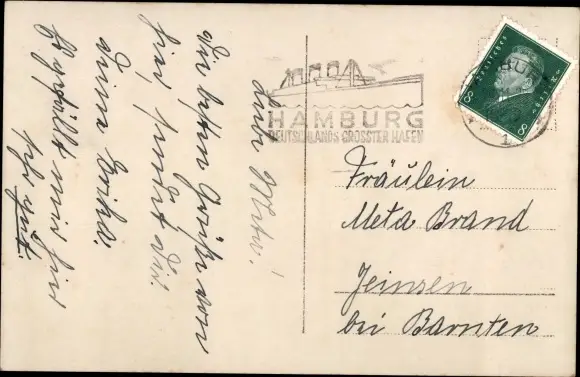 Liebe Meta!
Die besten Grüße von
hier sendet Dir
deine Erika.
Gefällt mir hier
sehr gut.
HAMBURG
DEUTSCHLANDS GRÖSSTER HAFEN
8 8
Fräulein
Meta Brand
Jeinsen
bei Barnten